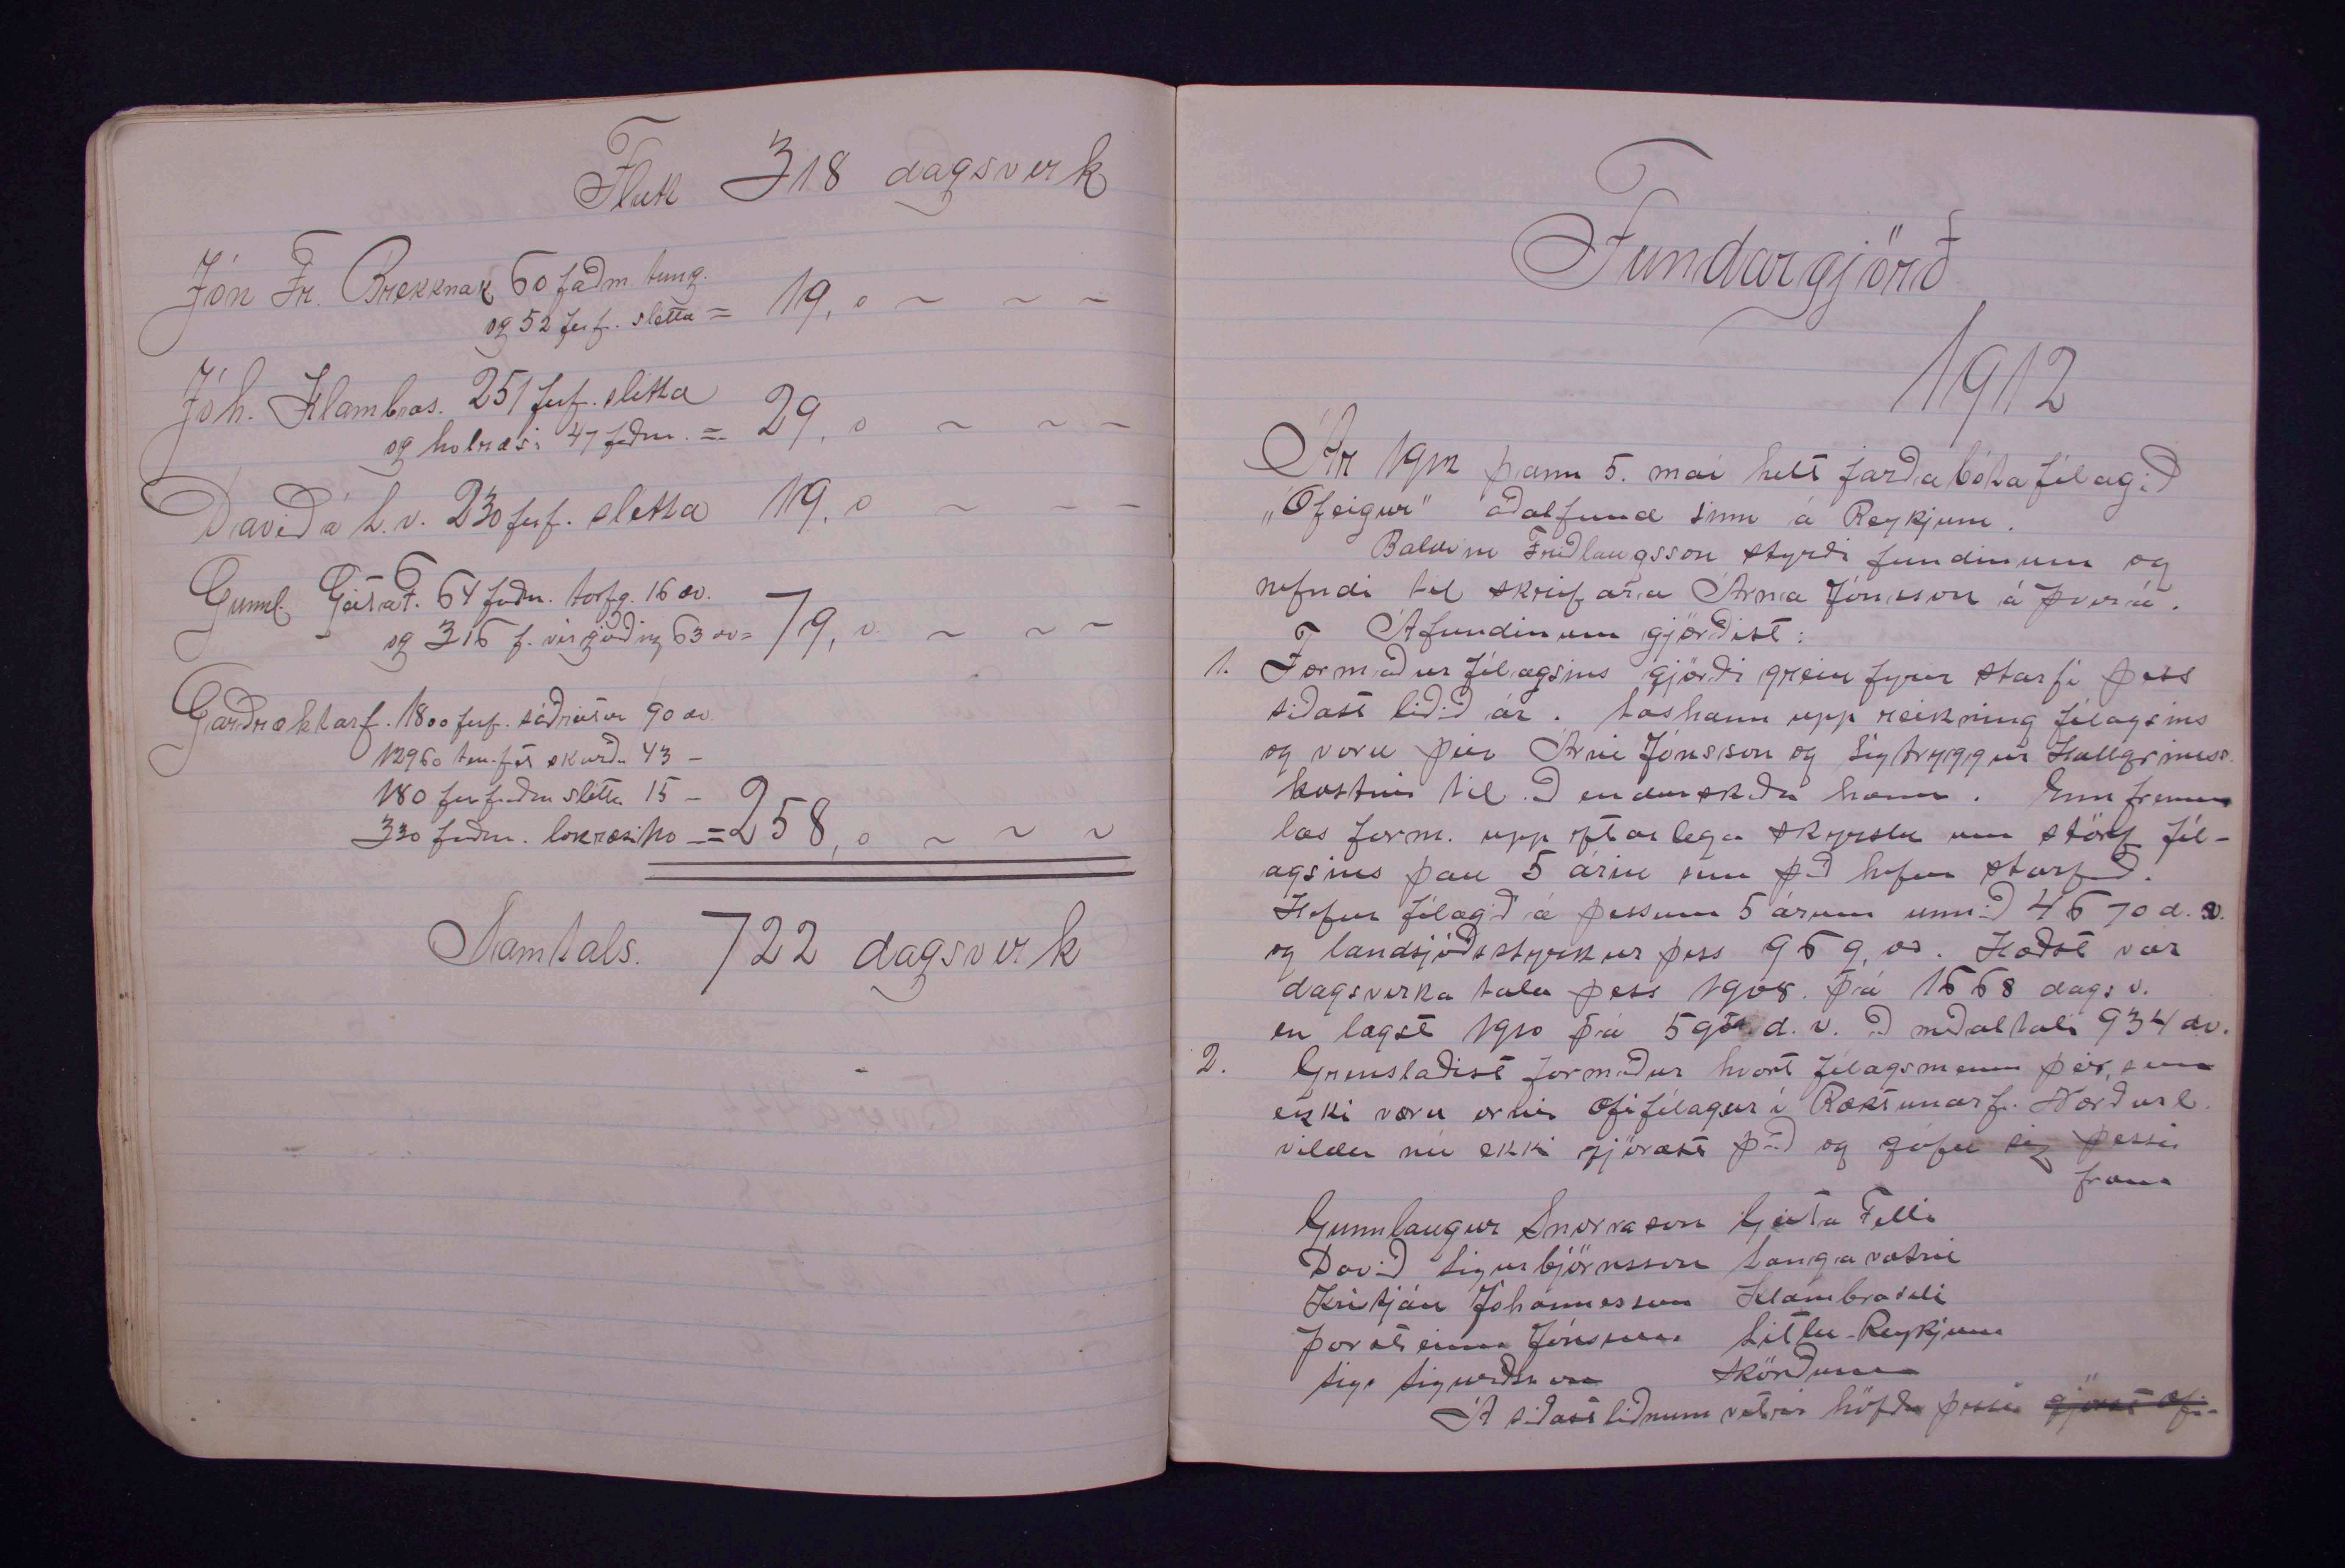 Flutt 318 dagsverk
Jón Fr. Brekknak 60 faðm. tung.
og 52 ferf. sletta = 19, 0 ~ ~ ~
Jóh. Klambras. 251 ferf. sletta
og holræsi 47 faðm. = 29, 0 ~ ~ ~
Davið á L.v. 230 ferf. sletta 19, 0 ~ ~ ~
Gunnl. Geitaf. 64 faðm. torfg. 16 dv.
og 316 f. vírgirðing 63 dv = 79, 0 ~ ~ ~
Garðræktarf. 1800 ferf. sáðreitur 90 dv
12960 ten.fet skurðu 43 -
180 ferfaðm sletta 15 -
330 faðm. lokræsi 110 - = 258, 0 ~ ~ ~
Samtals. 722 dagsverk
Fundargjörð
1912
Ár 1912 þann 5. mai helt jarðabótafélagið
„Ófeigur" aðalfund sinn á Reykjum.
Baldvin Friðlaugsson styrði fundinum og
nefndi til skrifara Árna Jónsson á Þverá.
Á fundinum gjörðist:
1. Formaður félagsins gjörði grein fyrir starfi þess
siðast liðið ár. Las hann upp reikning félagsins
og voru þeir Árni Jónsson og Sigtryggur Hallgrimss.
kostnir til að endurskoða hann. Enn fremur
las form. upp ýtarlega skyrslu um störf fél-
agsins þau 5 árin sem það hefur starfað.
Hefur félagið á þessum 5 árum unnið 4670 d.v.
og landsjóðsstyrkur þess 969, . Hæðst var
dagsverka tala þess 1908. þá 1668 dags v.
en lægst 1910 þá d.v. Að meðaltali 934 dv.
2. Grenslaðist formaður hvort félagsmenn þeir, sem
ekki væru orðnir æfifélagar í Ræktunarf. Norðurl.
vildu nú ekki gjörast það og gáfu sig þessir
fram
Gunnlaugur Snorrason Geita Felli
Davið Sigurbjörnsson Langavatni
Kristján Jóhannesson Klambraseli
Þorsteinn Jónsson Litlu-Reykjum
Sig. Sigurðsson Skörðum
Á siðastliðnum vetri höfðu þessir gjörst æfi-